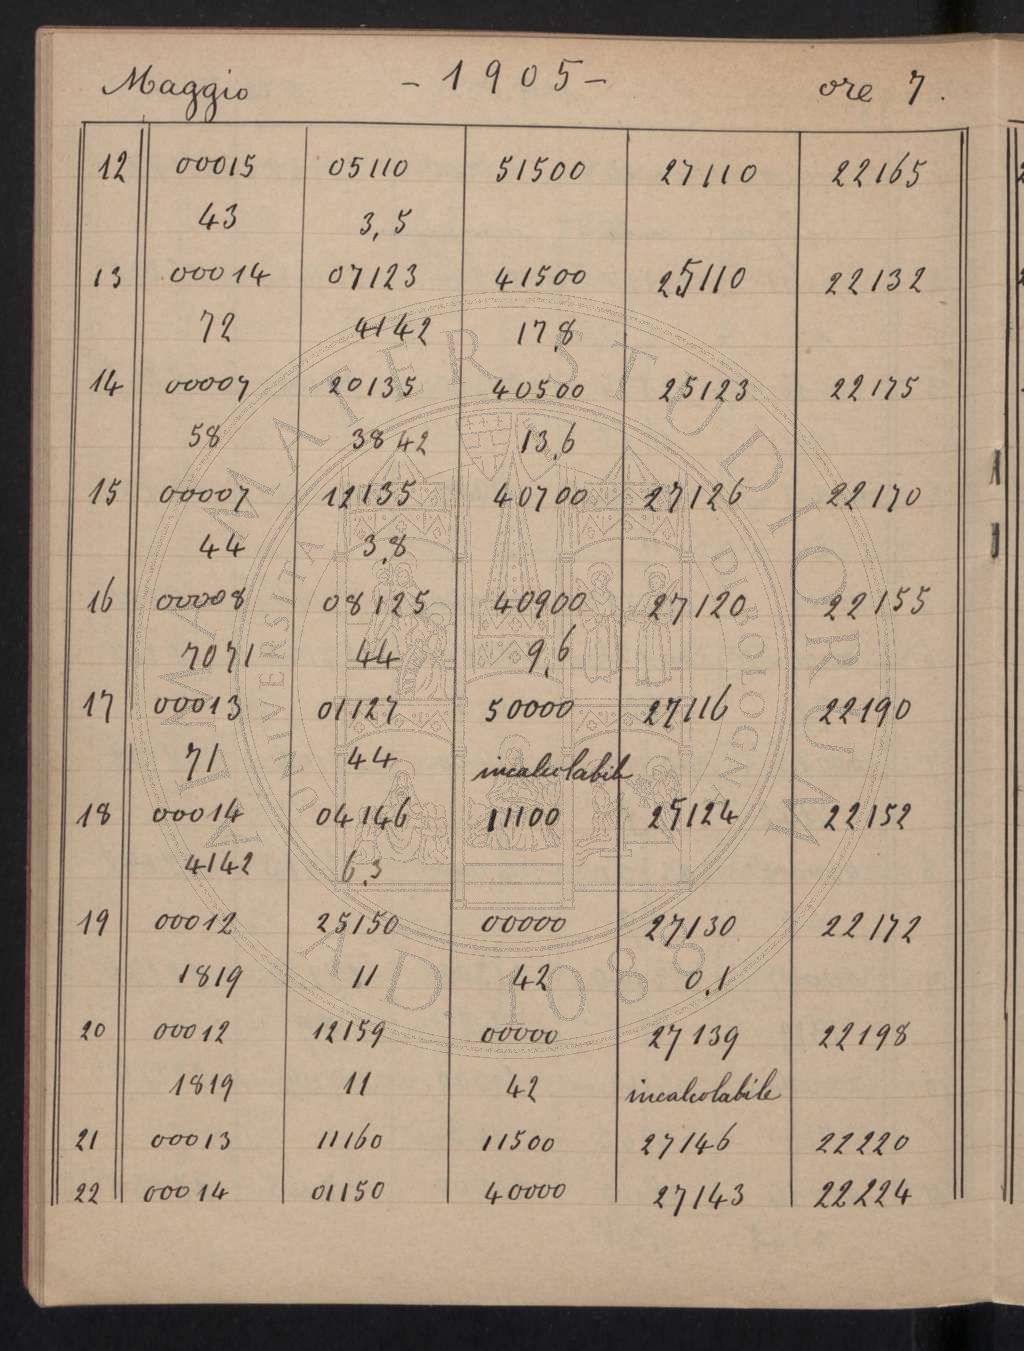 Maggio - 1905 - ore 7.
12 00015 05110 51500 27110 22165
43 3,5
13 00014 07123 41500 25110 22132
72 4142 17,8
14 00007 20135 40500 25123 22175
58 3842 13,6
15 00007 12135 40700 27126 22170
44 3,8
16 00008 08125 40900 27120 22155
7071 44 9,6
17 00013 01127 50000 27116 22190
71 44 incalcolabile
18 00014 04146 11100 25124 22152
4142 6,3
19 00012 25150 00000 27130 22172
1819 11 42 0,1
20 00012 12159 00000 27139 22198
1819 11 42 incalcolabile
21 00013 11160 11500 27146 22220
22 00014 01150 40000 27143 22224
ALMA MATER STUDIORUM
UNIVERSITÀ DI BOLOGNA
A.D. 1088